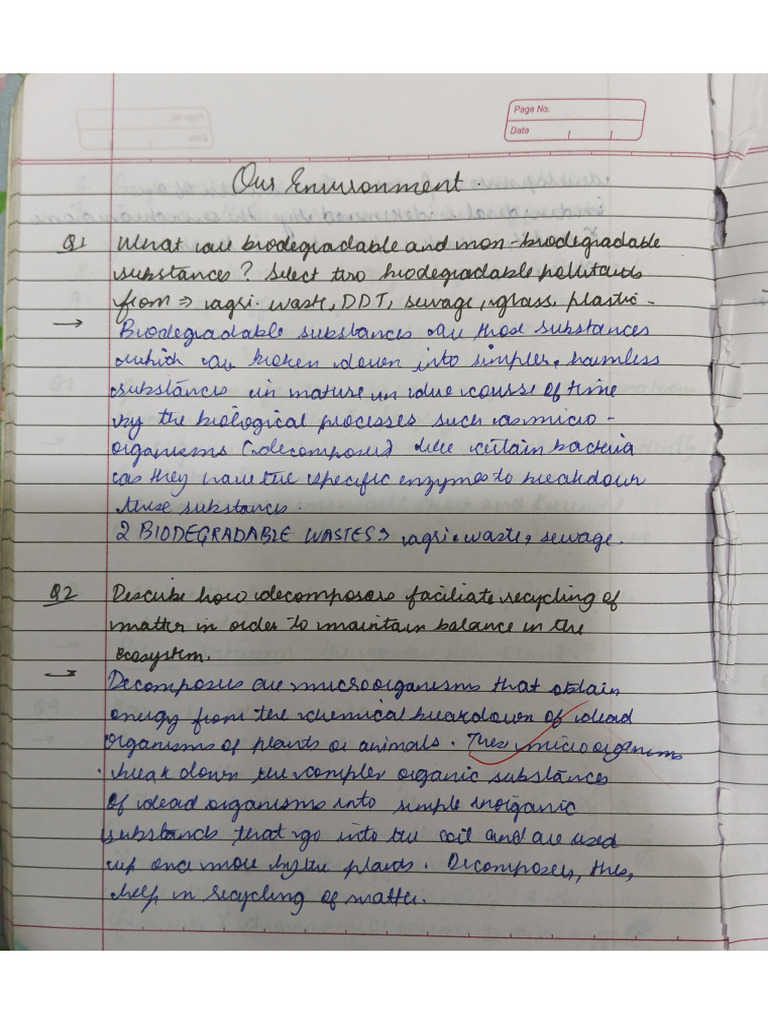 Page No.
Date
Our Environment.
Q1 What are biodegradable and non-biodegradable
substances? Select two biodegradable pollutants
from ⇒ agri. waste, DDT, sewage, glass, plastic.
→ Biodegradable substances are those substances
which are broken down into simpler, harmless
substances in nature in due course of time
by the biological processes such as micro-
organisms (decomposer) like certain bacteria
as they have the specific enzymes to breakdown
these substances.
2 BIODEGRADABLE WASTES ⇒ agri. waste, sewage.
Q2 Describe how decomposers faciliate recycling of
matter in order to maintain balance in the
ecosystem.
→ Decomposers are microorganisms that obtain
energy from the chemical breakdown of dead
organisms of plants or animals. These microorganisms
break down the complex organic substances
of dead organisms into simple inorganic
substands that go into the coil and are used
up once more by the plants. Decomposers, thus,
help in recycling of matter.